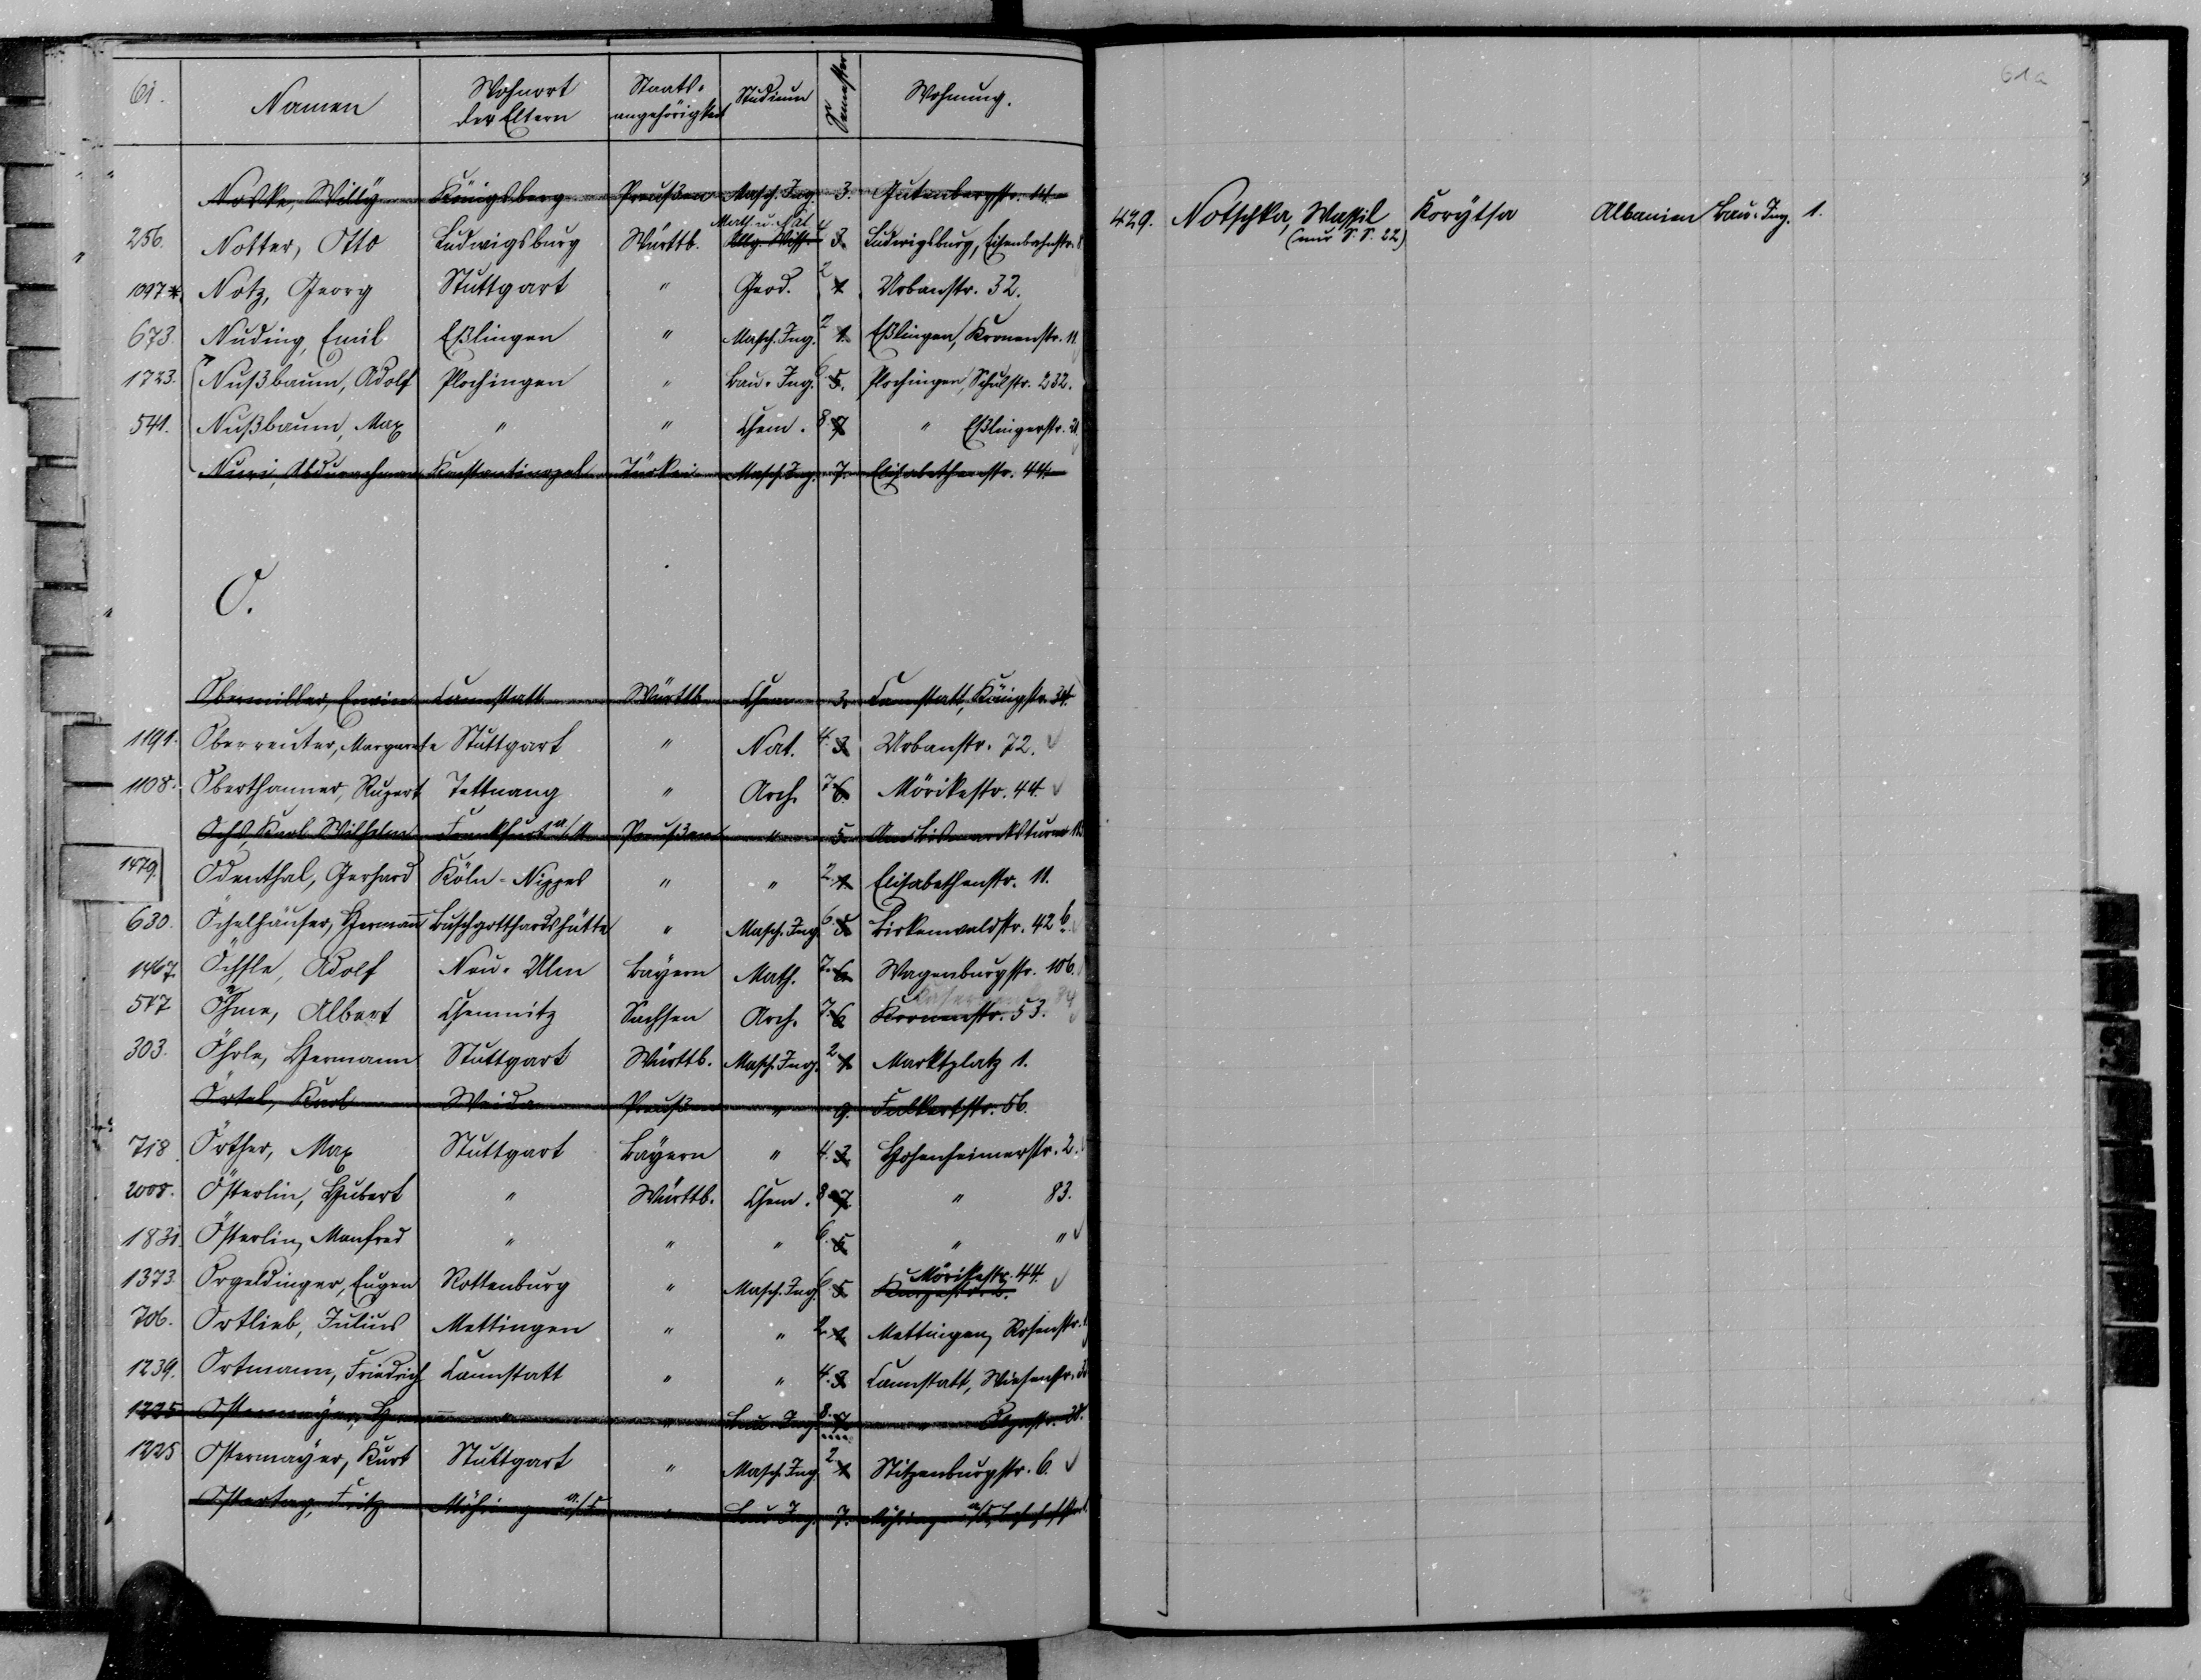 61.
Namen
Wohnort der Eltern
Staats-angehörigkeit
Studium
Semester
Wohnung.
Noske, Willy Königsberg Preußen Masch. Ing. 3. Gutenbergstr. 14.
256. Notter, Otto Ludwigsburg Württb. Math. u. Nat. Allg. Wiss. 4 3. Ludwigsburg, Eisenbahnstr. 8
1097 * Notz, Georg Stuttgart " Geod. 2 1 Urbanstr. 32.
673. Nuding, Emil Eßlingen " Masch. Ing. 2 1. Eßlingen, Kronenstr. 11
1723. Nußbaum, Adolf Plochingen " Bau-Ing. 6 5. Plochingen, Schulstr. 232.
541. Nußbaum, Max " " Chem. 8 7 " Eßlingerstr. 21
Nuri, Abdurachman Konstantinopel Türkei Masch. Ing. 7. Elisabethenstr. 44.
O.
Obermiller, Erwin Cannstatt Württb. Chem 3. Cannstatt, Königstr. 34.
1191. Oberreuter, Margarete Stuttgart " Nat. 4. 3 Urbanstr. 72.
1108. Oberthanner, Rupert Tettnang " Arch 7 6. Mörikestr. 44.
Ochs, Karl Wilhelm Frankfurt a/M Preußen " 5. Am Bismarckturm
1479. Odenthal, Gerhard Köln-Nippes " " 2. 1. Elisabethenstr. 11.
630. Öchelhäuser, Hermann Buschgotthardshütte " Masch. Ing. 6 5 Birkenwaldstr. 42 b.
1467. Öchsle, Adolf Neu-Ulm Bayern Math. 7. 6. Wagenburgstr. 106.
517 Öhme, Albert Chemnitz Sachsen Arch. 7. 6 Kronenstr. 53.
303. Öhrle, Hermann Stuttgart Württb. Masch. Ing. 2 1 Marktplatz 1.
Örtel, Karl Weida Preußen " 9. Falkertstr. 56.
718 Öther, Max Stuttgart Bayern " 4. 3 Hohenheimerstr. 2.
2008. Österlin, Hubert " Württb. Chem. 8 7 " 83.
1831. Österlin, Manfred " " " 6. 5 " "
1373. Orgeldinger, Eugen Rottenburg " Masch. Ing. 6 5 Mörikestr. 44.
706. Ortlieb, Julius Mettingen " " 2 1 Mettingen, Rosenstr.
1239. Ortmann, Friedrich Cannstatt " " 4. 3 Cannstatt, Wiesenstr.
1225 Ostermayer, Bau-Ing. 8. 7 "
1225 Ostermayer, Kurt Stuttgart " Masch. Ing. 2 1 Stitzenburgstr. 6.
Ostertag, Fritz Möhringen a/F " Bau-Ing. 7. Möhringen a/F
61a
429. Notschka, Wassil Korytsa Albanien Bau-Ing. 1.
(nur S. S. 22)